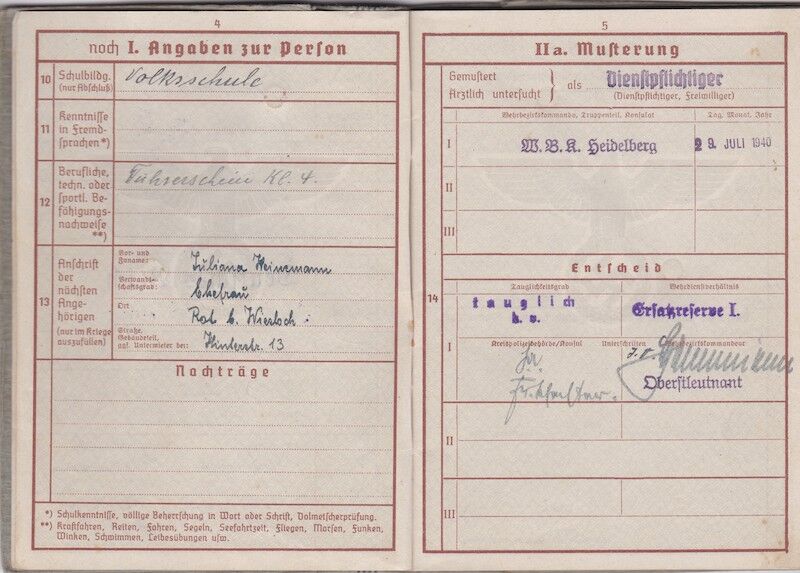 4
noch I. Angaben zur Person
10 Schulbildg. (nur Abschluß) Volksschule
11 Kenntnisse in Fremdsprachen *)
12 Berufliche, techn. oder sportl. Befähigungsnachweise **) Führerschein Kl. 4.
13 Anschrift der nächsten Angehörigen (nur im Kriege auszufüllen)
Vor- und Zuname: Juliana Weinmann
Verwandtschaftsgrad: Ehefrau
Ort Rot b. Wiesloch
Straße, Gebäudeteil, ggf. Untermieter bei: Hinterstr. 13
Nachträge
*) Schulkenntnisse, völlige Beherrschung in Wort oder Schrift, Dolmetscherprüfung.
**) Kraftfahren, Reiten, Fahren, Segeln, Seefahrtzeit, Fliegen, Morsen, Funken,
Winken, Schwimmen, Leibesübungen usw.
5
IIa. Musterung
Gemustert
Ärztlich untersucht } als Dienstpflichtiger
(Dienstpflichtiger, Freiwilliger)
Wehrbezirkskommando, Truppenteil, Konsulat Tag, Monat, Jahr
I W.B.K. Heidelberg 29. JULI 1940
II
III
Entscheid
14
Tauglichkeitsgrad Wehrdienstverhältnis
tauglich Ersatzreserve I.
k.v.
I Kreispolizeibehörde/Konsul Unterschriften Wehrbezirkskommandeur
J.V.
Oberstleutnant
II
III